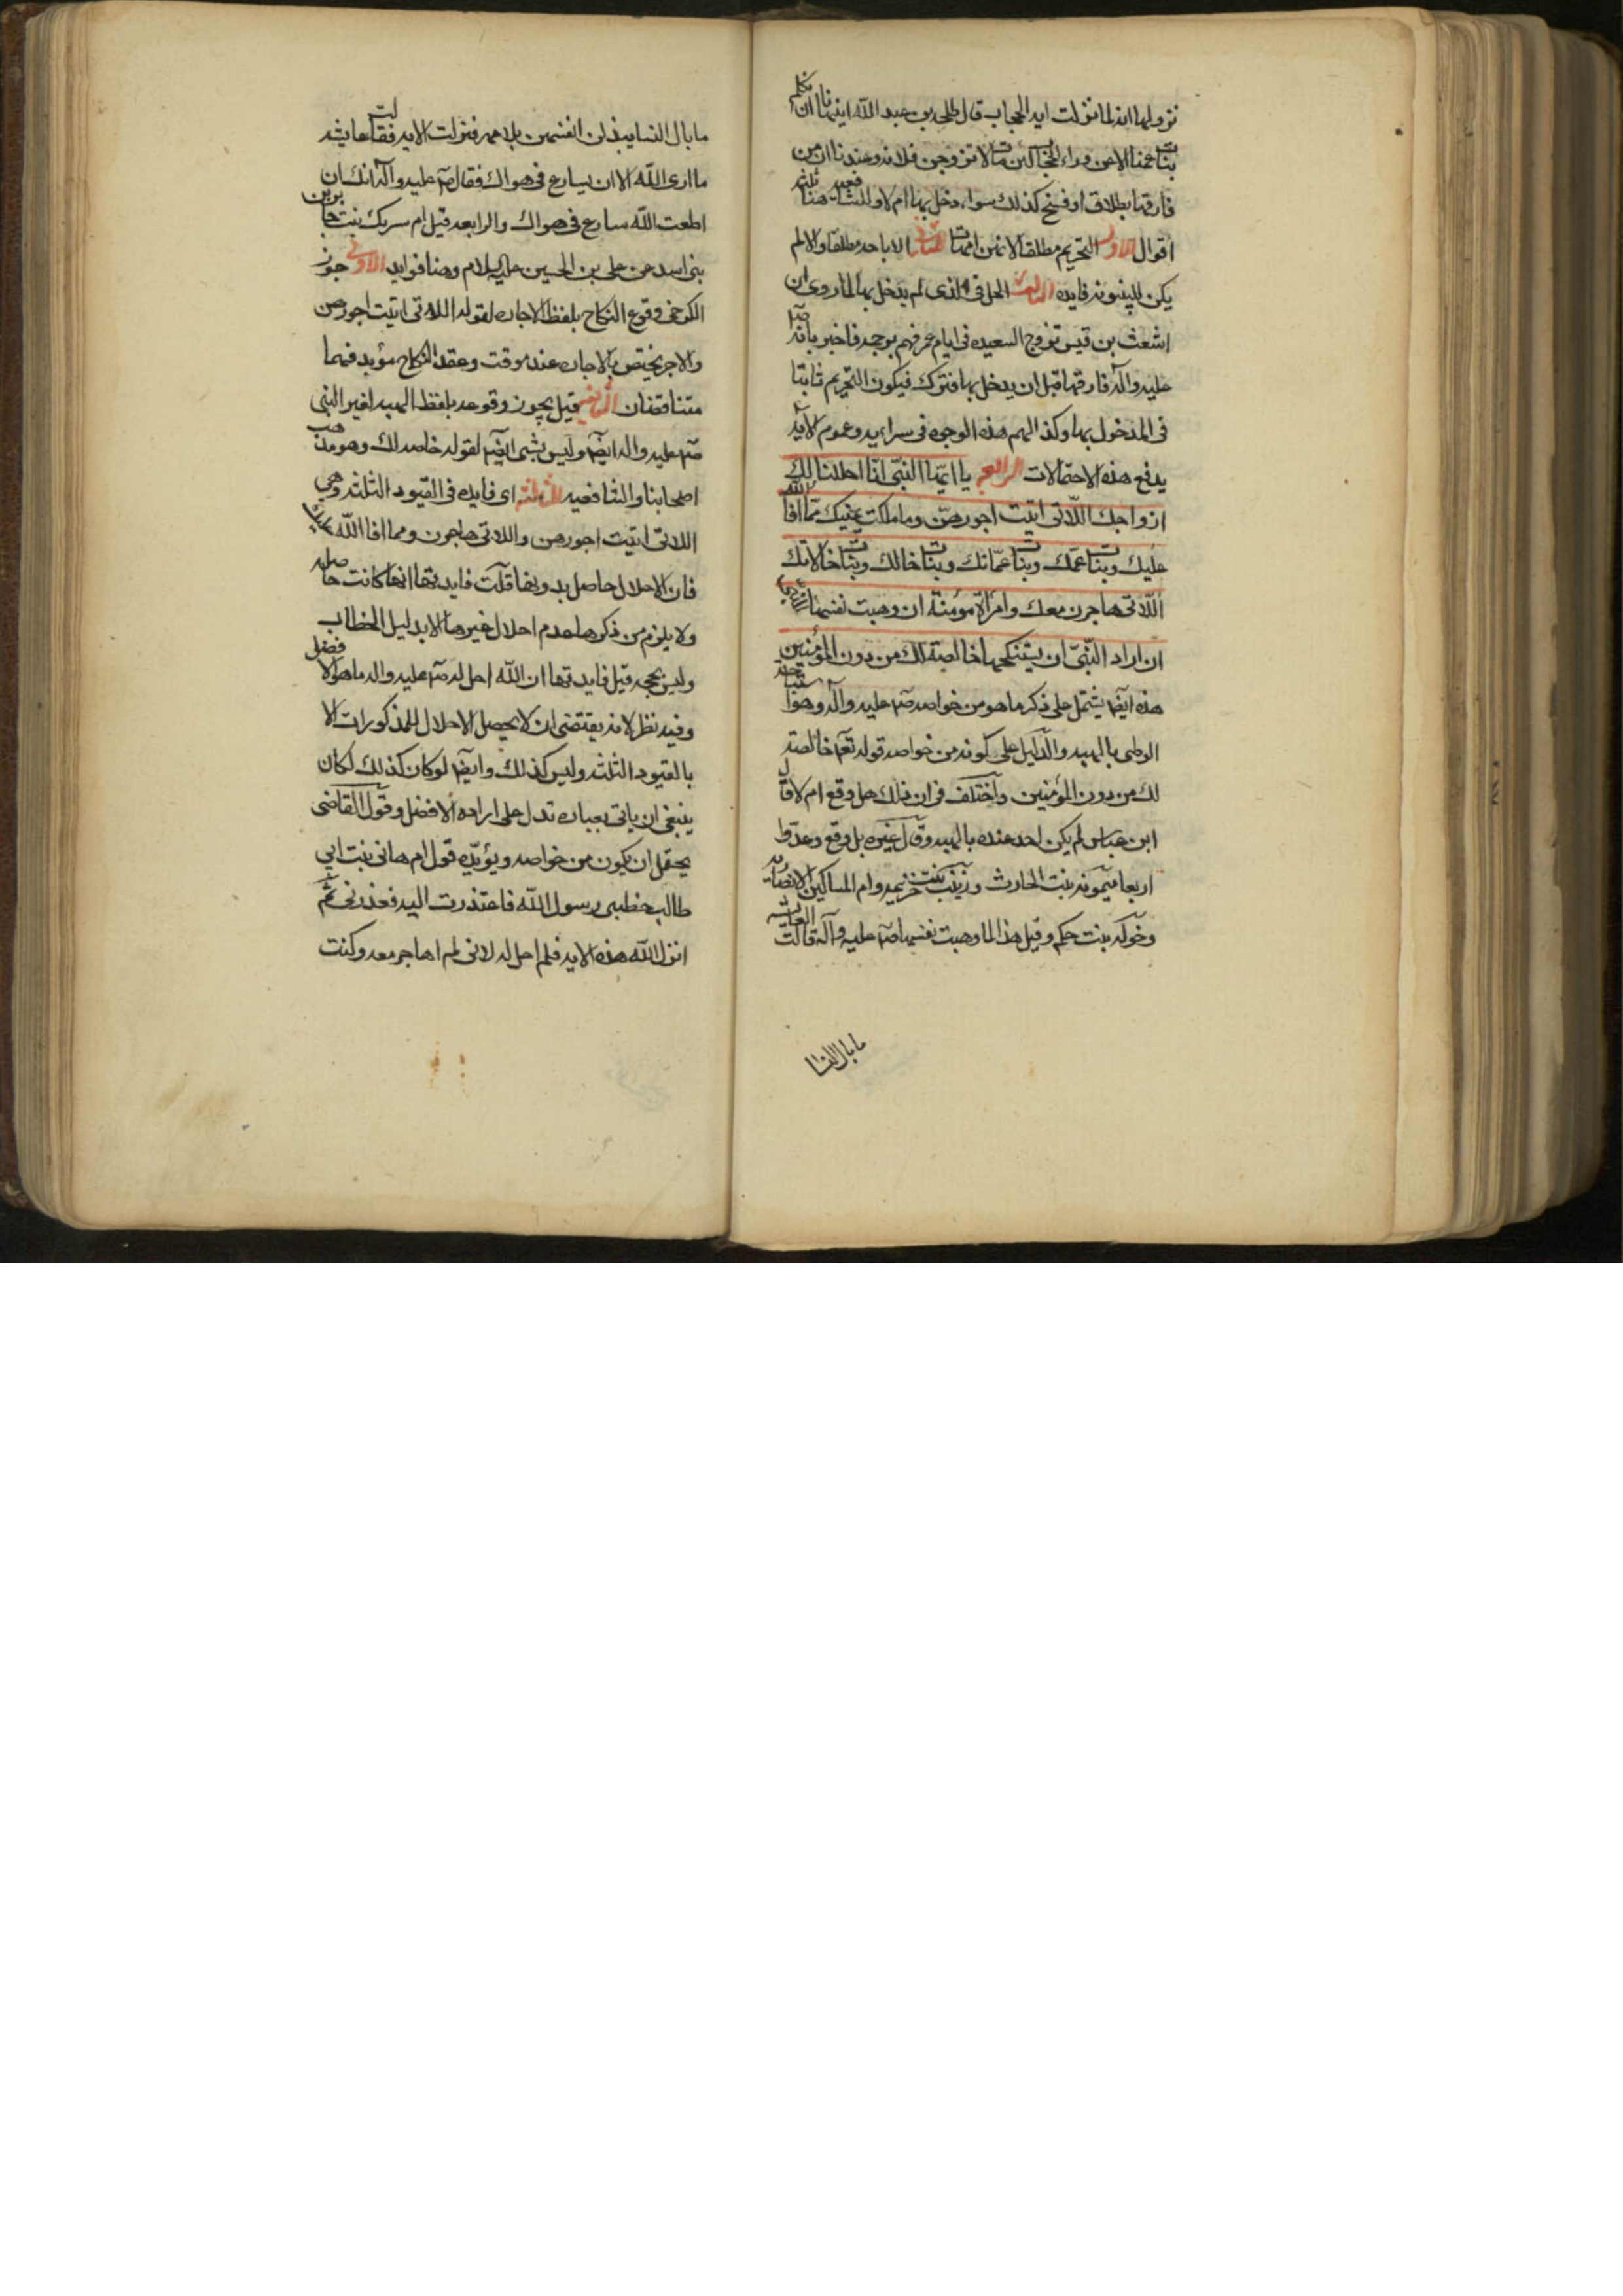 نزولها انه لما نزلت اية الحجاب قال طلحه بن عبد الله اينهانا ان نكلم
بنات عمنا الا من وراء الحجاب لئن مات لاتزوجن فلانه وعندنا ان من
فارقها بطلاق او فسخ كذلك سواء دخل بها ام لا وللشافعيه هنا ثلثه
اقوال الاول التحريم مطلقا لانهن امهات الثانى الاباحه مطلقا والا لم
يكن للبينونه فايده الثالث الحل فى الذى لم يدخل بها لما روى ان
اشعث بن قيس تزوج السعيده فى ايام عمر فهم برجمه فاخبر بانه صلى
عليه وآله فارقها قبل ان يدخل بها فترك فيكون التحريم ثابتا
فى المدخول بها وكذا لهم هذه الوجوه فى سراريه وعموم الآيه
يدفع هذه الاحتمالات الرابعه يا ايها النبى انا احللنا لك
ازواجك اللاتى اتيت اجورهن وما ملكت يمينك مما افا الله
عليك وبنات عمك وبنات عماتك وبنات خالك وبنات خالاتك
اللاتى هاجرن معك وامرأة مؤمنة ان وهبت نفسها للنبى
ان اراد النبى ان يستنكحها خالصة لك من دون المؤمنين
هذه ايضا يشتمل على ذكر ما هو من خواصه صم عليه وآله وهو استباحه
الوطى بالهبه والدليل على كونه من خواصه قوله تعم خالصة
لك من دون المؤمنين واختلف فى ان ذلك هل وقع ام لا قال
ابن عباس لم يكن احد عنده بالهبه وقال غيره بل وقع وعدوا
اربعا ميمونه بنت الحارث وزينب بنت خزيمه وام المساكين الانصاريه
وخوله بنت حكم وقيل هذا لما وهبت نفسها صم عليه وآله قالت العايشه
ما بال النسا
ما بال النسا يبذلن انفسهن بلا مهر فنزلت الايه فقالت عايشه
ما ارى الله الا ان يسارع فى هواك فقال صم عليه وآله انك ان
اطعت الله سارع فى هواك والرابعه قيل ام سريك بنت جابر بن
بنى اسد عن على بن الحسين عليه السلام وهنا فوايد الاولى جوز
الكرخى وقوع النكاح بلفظ الاجاره لقوله اللاتى اتيت اجورهن
والاجر يختص بالاجاره عنده موقت وعقد النكاح مؤبد فهما
متناقضان الثانيه قيل يجوز وقوعه بلفظ الهبه لغير النبى
صم عليه واله ايضا وليس بشى ايضا لقوله خاصه لك وهو مذهب
اصحابنا والشافعيه الثالثه اى فايده فى القيود الثلثه وهى
اللاتى اتيت اجورهن واللاتى هاجرن ومما افا الله عليك
فان الاحلال حاصل بدونها قلت فايدتها انها كانت حاصله
ولا يلزم من ذكرها عدم احلال غيرها الا بدليل الخطاب
وليس بحجه قيل فايدتها ان الله احل له صم عليه واله ما هو الافضل
وفيه نظر لانه يقتضى ان لا يحصل الاحلال المذكورات الا
بالقيود الثلثه وليس كذلك وايضا لو كان كذلك لكان
ينبغى ان ياتى بعباره تدل على اراده الافضل وقول القاضى
يحتمل ان يكون من خواصه ويؤيده قول ام هانى بنت ابى
طالب خطبنى رسول الله فاعتذرت اليه فعذرنى ثم
انزل الله هذه الايه فلم احل له لانى لم اهاجر معه وكنت